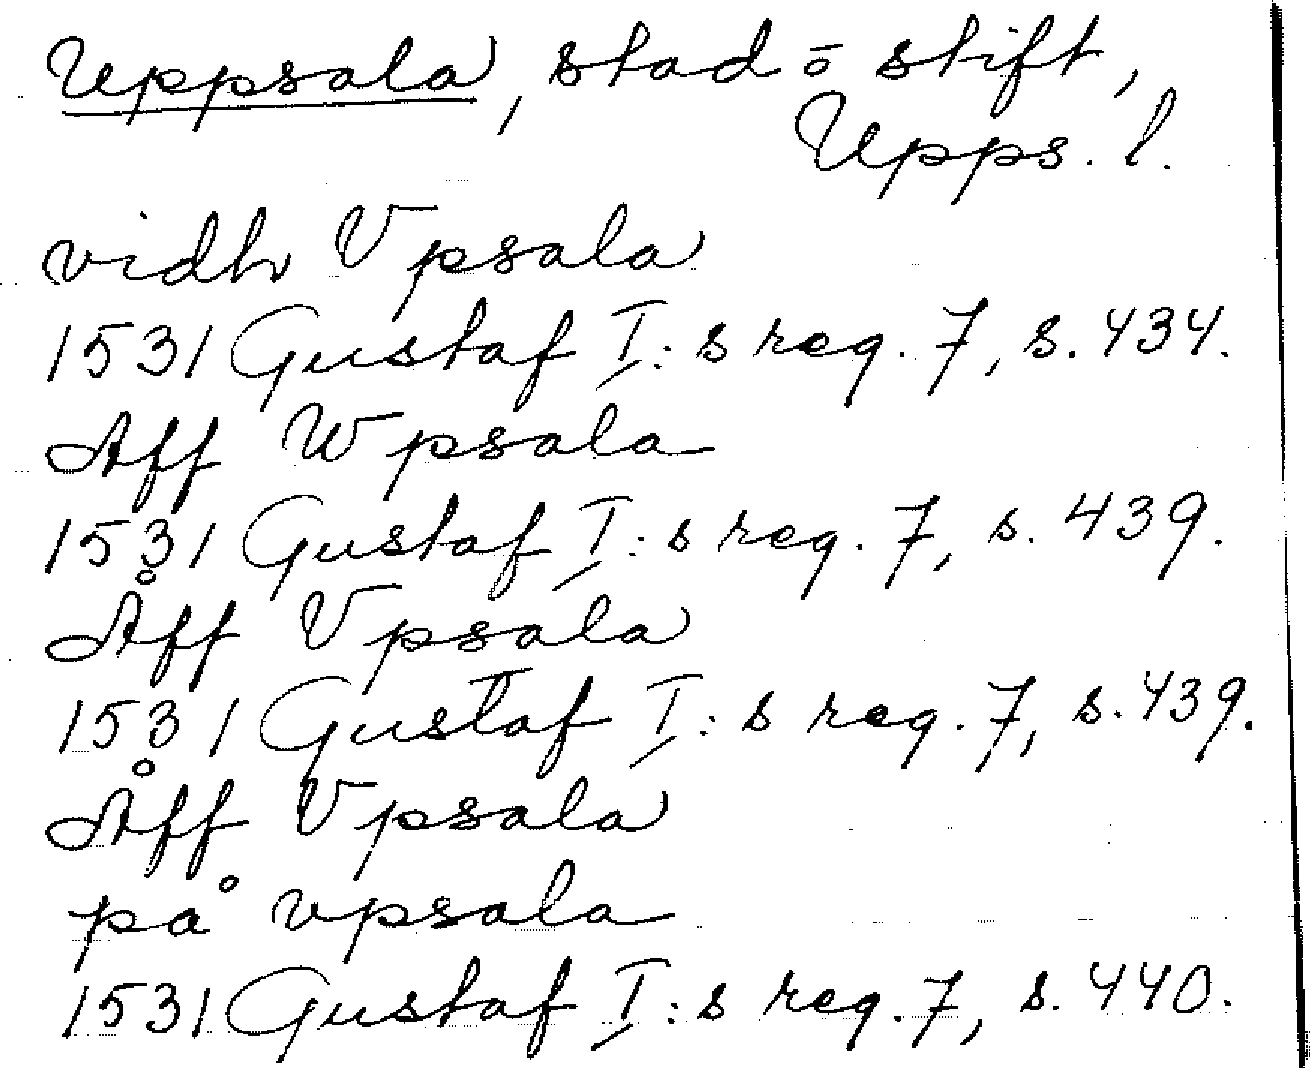 Uppsala, stad o stift,
Upps. l.
vidh Vpsala
1531 Gustaf I:s reg. 7, s. 434.
Aff Wpsala
1531 Gustaf I:s reg. 7, s. 439.
Åff Vpsala
1531 Gustaf I:s reg. 7, s. 439.
Åff Vpsala
på vpsala
1531 Gustaf I:s reg. 7, s. 440.